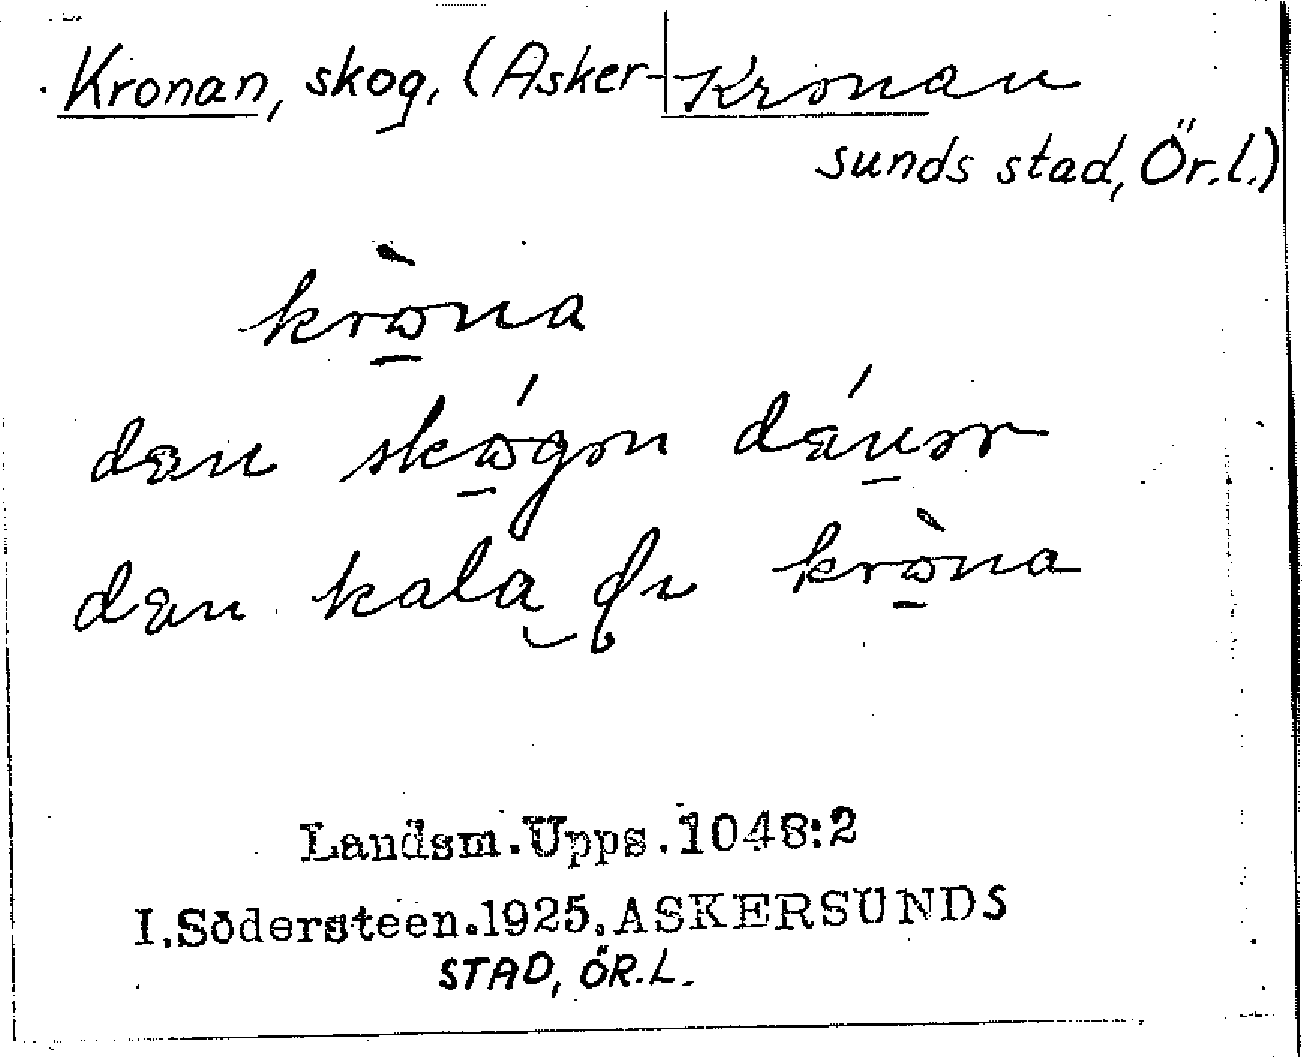 Kronan, skog, (Asker- Kronan
sunds stad, Ör.l.)
kròna
dæn skógon
dæn kala kròna
Landsm.Upps.1048:2
I.Södersteen.1925.ASKERSUNDS
STAD, ÖR.L.